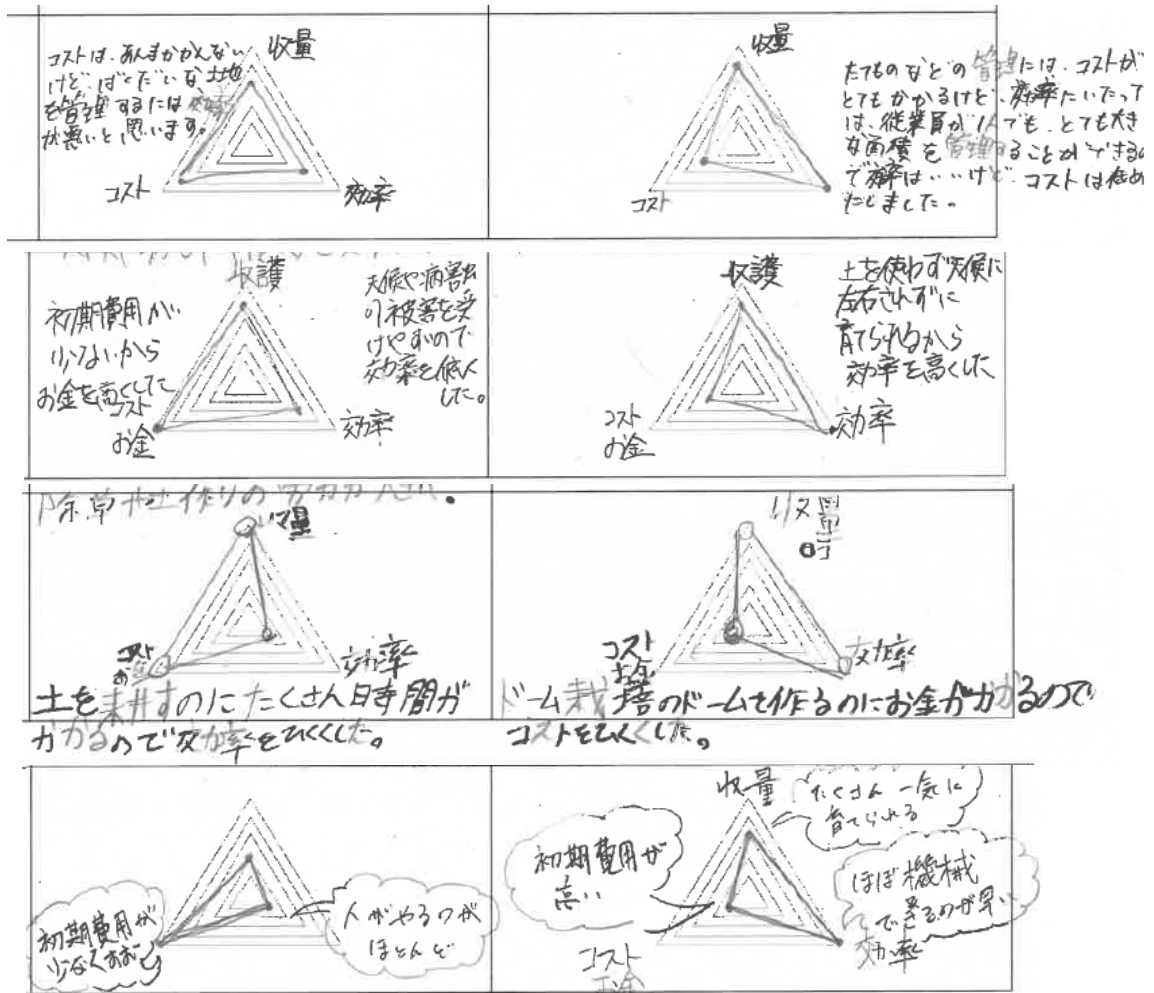 コストは、あんまかかんない
けど、ばくだいな、土地
を管理するには、効率
が悪いと思います。
収量
コスト
効率
収量
コスト
たてものなどの管理には、コストが
とてもかかるけど、効率にいたって
は、従業員が1人でも、とても大き
な面積を管理することができるの
で効率は・・いいけど、コストは低め
にしました。
初期費用が
少ないから
お金を高くした
収護
天候や病害虫
の被害を受
けやすいので
効率を低く
した。
コスト
お金
効率
収護
土を使わず天候に
左右されずに
育てられるから
効率を高くした
コスト
お金
効率
除草や土作りの
収量
コスト
効率
土を耕すのにたくさん時間が
かかるので効率をひくくした。
収量
コスト
お金
効率
ドーム栽培のドームを作るのにお金がかかるので
コストをひくくした。
初期費用が
人がやるのが
ほとんど
収量
たくさん一気に
育てられる
初期費用が
高い
ほぼ機械
できるのが早い
コスト
お金
効率